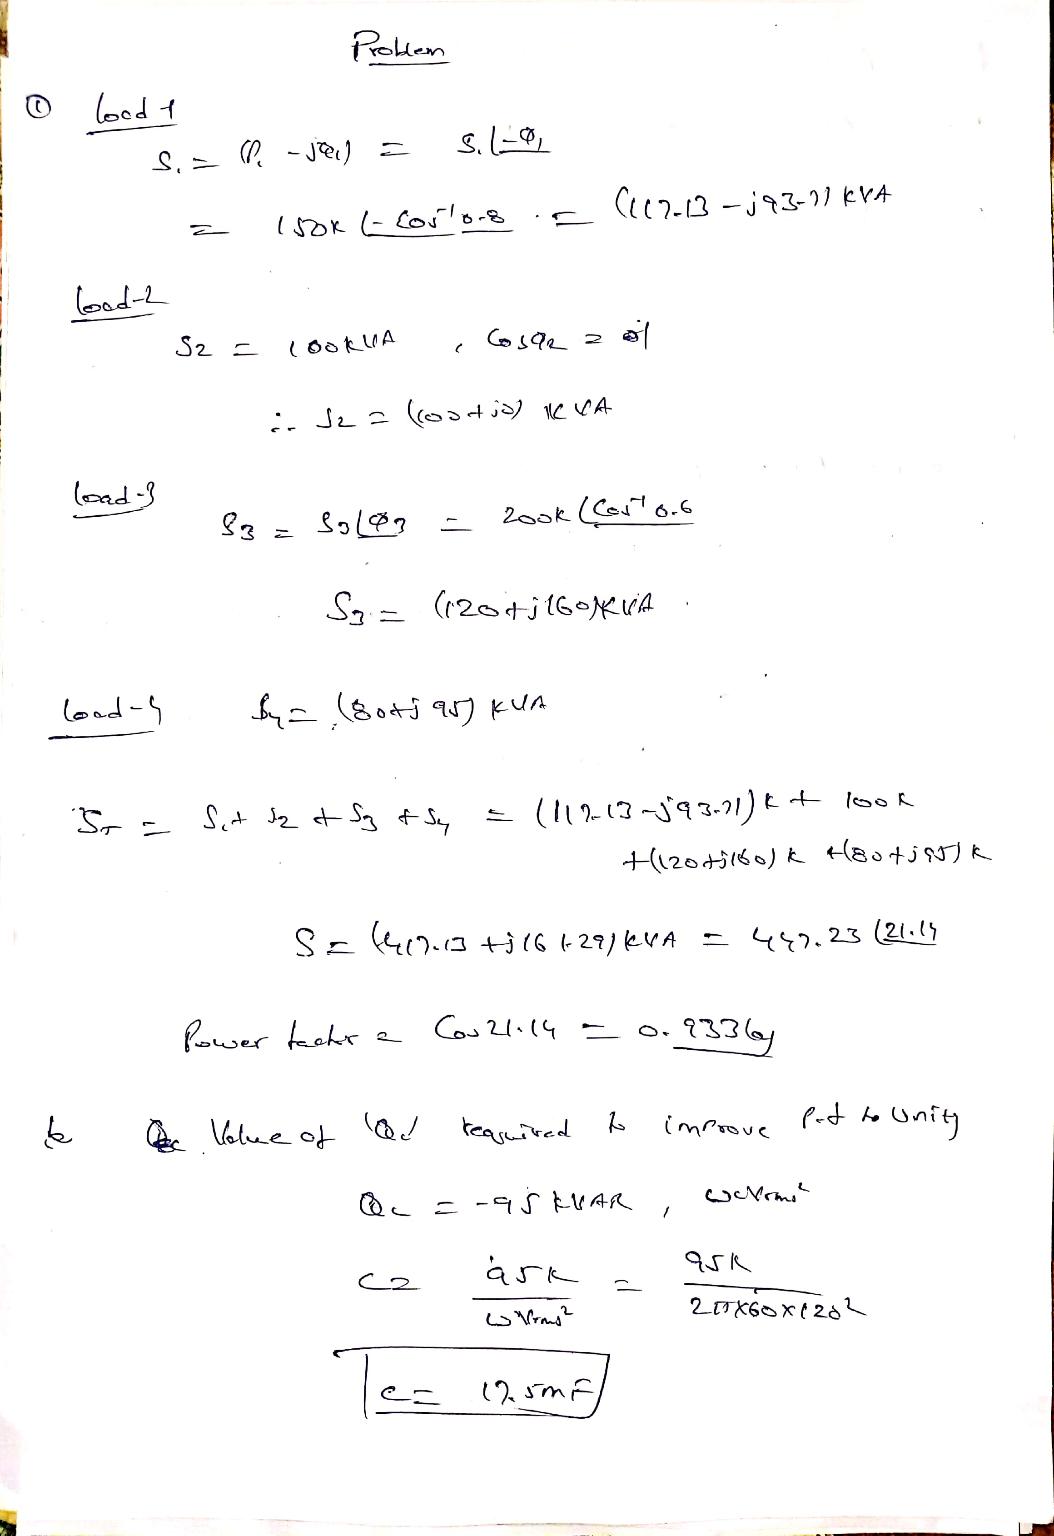 Problem
① load 1
S₁ = (P₁ - jQ₁) = S₁∠-Φ₁
= 150k ∠-Cos⁻¹0.8 = (117.13 - j93.71) KVA
load-2
S2 = 100KVA , Cosφ2 = 1
∴ S2 = (100+j0) KVA
load-3
S3 = S3∠Φ3 = 200k ∠Cos⁻¹0.6
S3 = (120+j160)KVA
load-4 S4 = (80+j95) KVA
ST = S1+ S2 + S3 + S4 = (117.13-j93.71)k + 100k
+(120+j160)k +(80+j95)k
S = (417.13 +j161.29)KVA = 447.23 ∠21.14
Power factor = Cos21.14 = 0.933 lag
b Value of 'Qc' required to improve P.f to Unity
Qc = -95 KVAR , ωcVrms²
C= 95K / ωVrms² = 95K / 2π×60×120²
C= 17.5mF